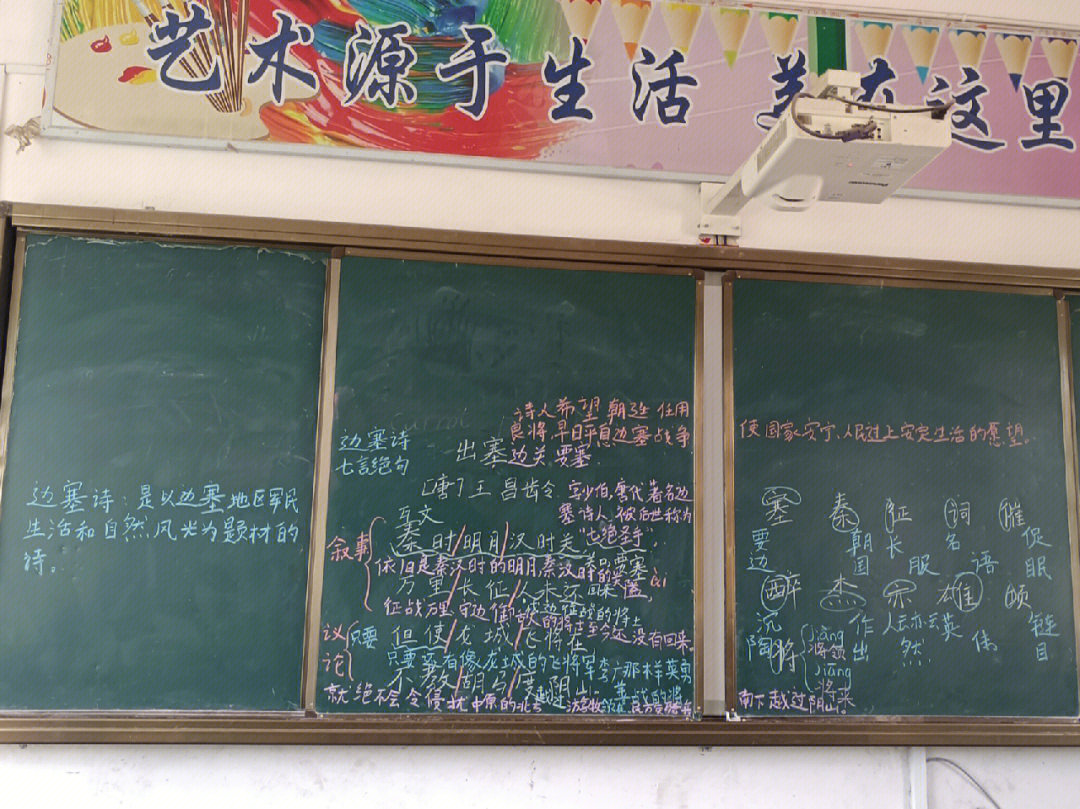 艺术源于生活 美在这里
Panasonic
边塞诗：是以边塞地区军民
生活和自然风光为题材的
诗。
诗人希望朝廷任用
良将早日平息边塞战争
使国家安宁、人民过上安定生活的愿望。
边塞诗
七言绝句
出塞边关要塞
[唐]王昌龄 字少伯,唐代著名边
塞诗人 被后世称为
"七绝圣手"
互文
叙事
秦时/明月/汉时关
依旧是秦汉时的明月秦汉时的关塞
万里/长征/人未还
征战万里 守边御敌的将士至今还没有回来。
议论
只要 但使/龙城/飞将在
只要还有像龙城的飞将军李广那样英勇
不教/胡马/度阴山
就绝不会令侵扰中原的
南下越过阴山。
塞 秦 征 词 催
要 朝 长 名 促
边 国 服 语 眠
醉 杰 亦 雄 项
沉 作 人云亦云 英 链
陶 出 然 伟 目
将 jiāng
将领
jiāng
将来